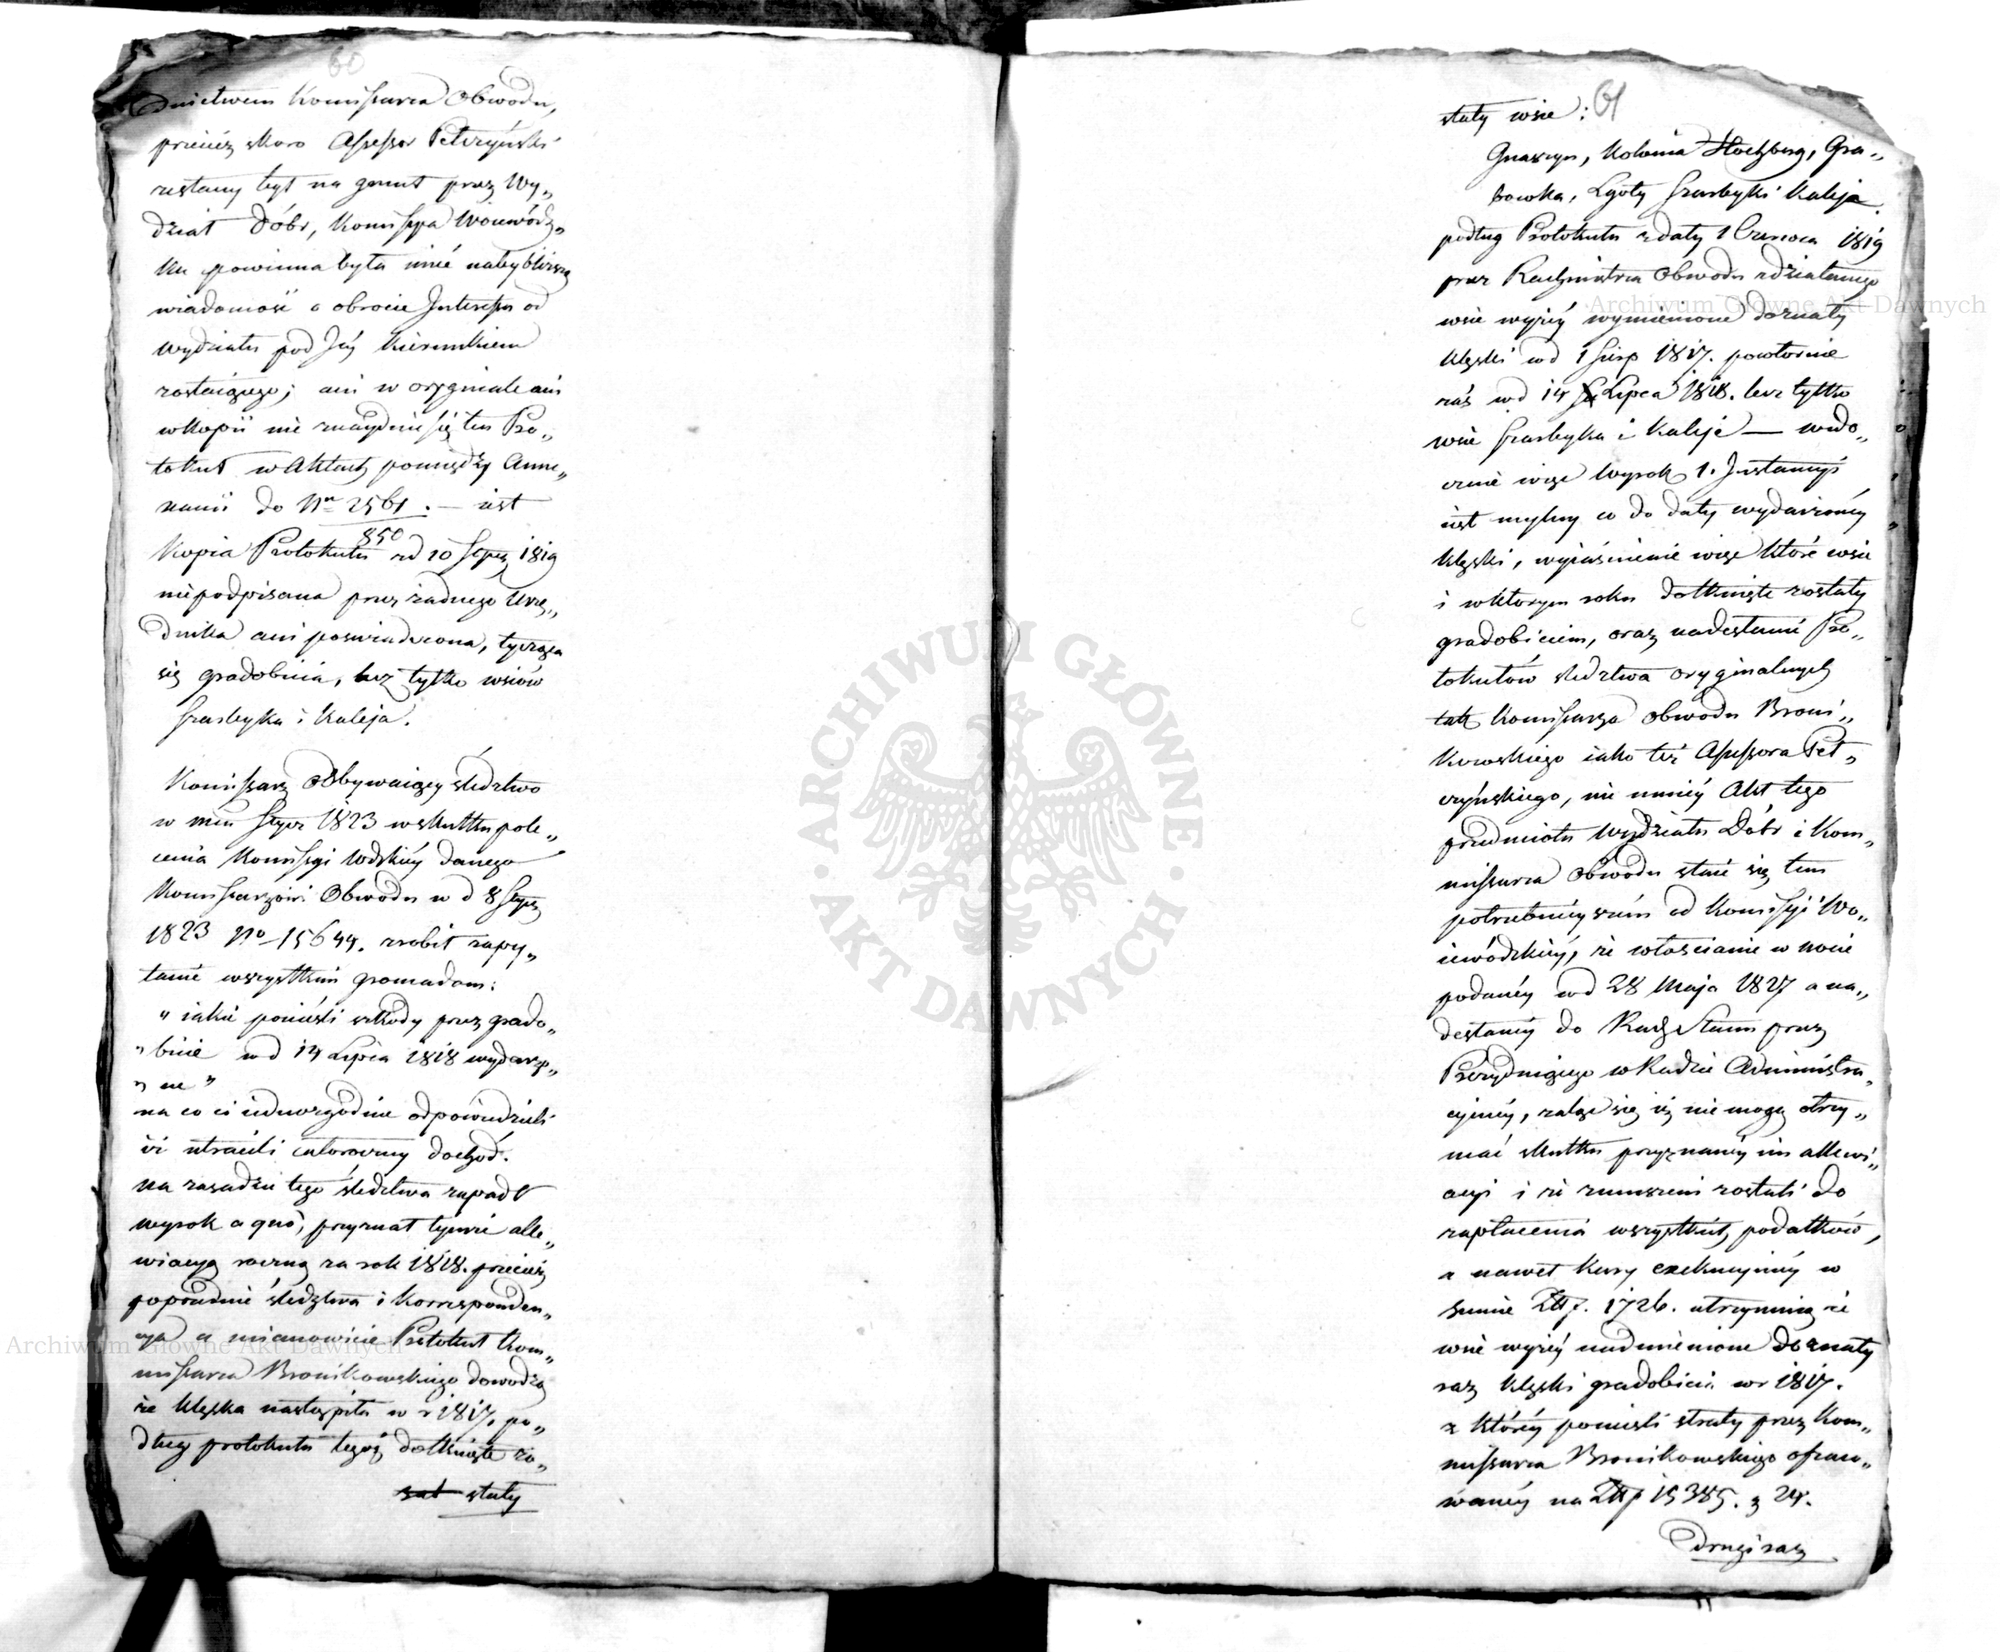 60
dnictwem Kommissarza Obwodu,
przeciéz skoro Assessor Petrzyński
zesłany był na grunt przez Wy„
dział Dóbr, Kommissya Woiewódz„
ka powinna była mieć naybliższą
wiadomość o obrocie Interessu od
Wydziału pod Jéy kierunkiem
zostaiącego; ani w oryginale ani
w kopii nie znayduie się ten Pro„
tokuł w Aktach pomiędzy Anne„
xami do Nru 2561. — iest
850
Kopia Protokułu z d 10 Stycz 1819
niepodpisana przez żadnego Urzę„
dnika ani poświadczona, tycząca
się gradobicia, lecz tylko wsiów
Szarleyka i Kaleja.
Kommissarz Odbywaiący śledztwo
w mcu Stycz 1823 w skutku pole„
cenia Kommissyi Wdzkiéy danego
Kommissarzowi Obwodu w d 8 Stycz
1823 No 15644. zrobił zapy„
tanie wszystkim gromadom:
" iakie ponieśli szkody przez grado„
" bicie w d 14 Lipca 1818 wydarzo„
" ne "
na co ci iednozgodnie odpowiedzieli
iż utracili całoroczny dochód.
Na zasadzie tego śledztwa zapadł
wyrok a quo, przyznał tymże alle„
wiacyą roczną za rok 1818. przecież
poprzednie śledztwa i Korresponden„
cya a mianowicie Protokuł Kom„
missarza Bronikowskiego dowodzą
że klęska nastąpiła w r 1817. po„
dług protokułu tegoż dotknięte zo„
stały
61
stały wsie:
Gnaszyn, Kolonia Hochberg, Gra„
bowka, Lgoty Szarleyki Kaleja.
podług Protokułu z daty 1 Czerwca 1819
przez Rachmistrza Obwodu zdziałanego
wsie wyżéy wymienione doznały
klęski w d 1 Sierp 1817. powtornie
zaś w d 14 Lipca 1818. lecz tylko
wsie Szarleyka i Kaleje — wido„
cznie więc Wyrok 1. Instancyi
iest mylny co do daty wydarzonéy
klęski, wyiaśnienie więc które wsie
i w którym roku dotknięte zostały
gradobiciem, oraz nadesłanie Pro„
tokułów śledztwa oryginalnych
tak Kommissarza Obwodu Broni„
kowskiego iako też Assessora Pet„
rzyńskiego, nie mniéy Akt tego
przedmiotu Wydziału Dóbr i Kom„
missarza Obwodu staie się tem
potrzebnieyszém od Kommissyi Wo„
iewódzkiéy, że włościanie w nocie
podanéy w d 28 Maja 1827 a na„
desłanéy do Rady Stanu przez
Prezyduiącego w Radzie Administra„
cyinéy, żalą się iż nie mogą otrzy„
mać skutku przyznanéy im allewi„
acyi i że zmuszeni zostali do
zapłacenia wszystkich podatków,
a nawet kary exekucyinéy w
summie Złłp. 1726. utrzymuią że
wsie wyżéy nadmienione doznały
raz klęski gradobicia w r 1817.
z któréy ponieśli straty przez Kom„
missarza Bronikowskiego oszaco„
wanéy na Złłp 15385. g 24.
drugi raz
ARCHIWUM GŁÓWNE · AKT DAWNYCH ·
Archiwum Główne Akt Dawnych
Archiwum Główne Akt Dawnych